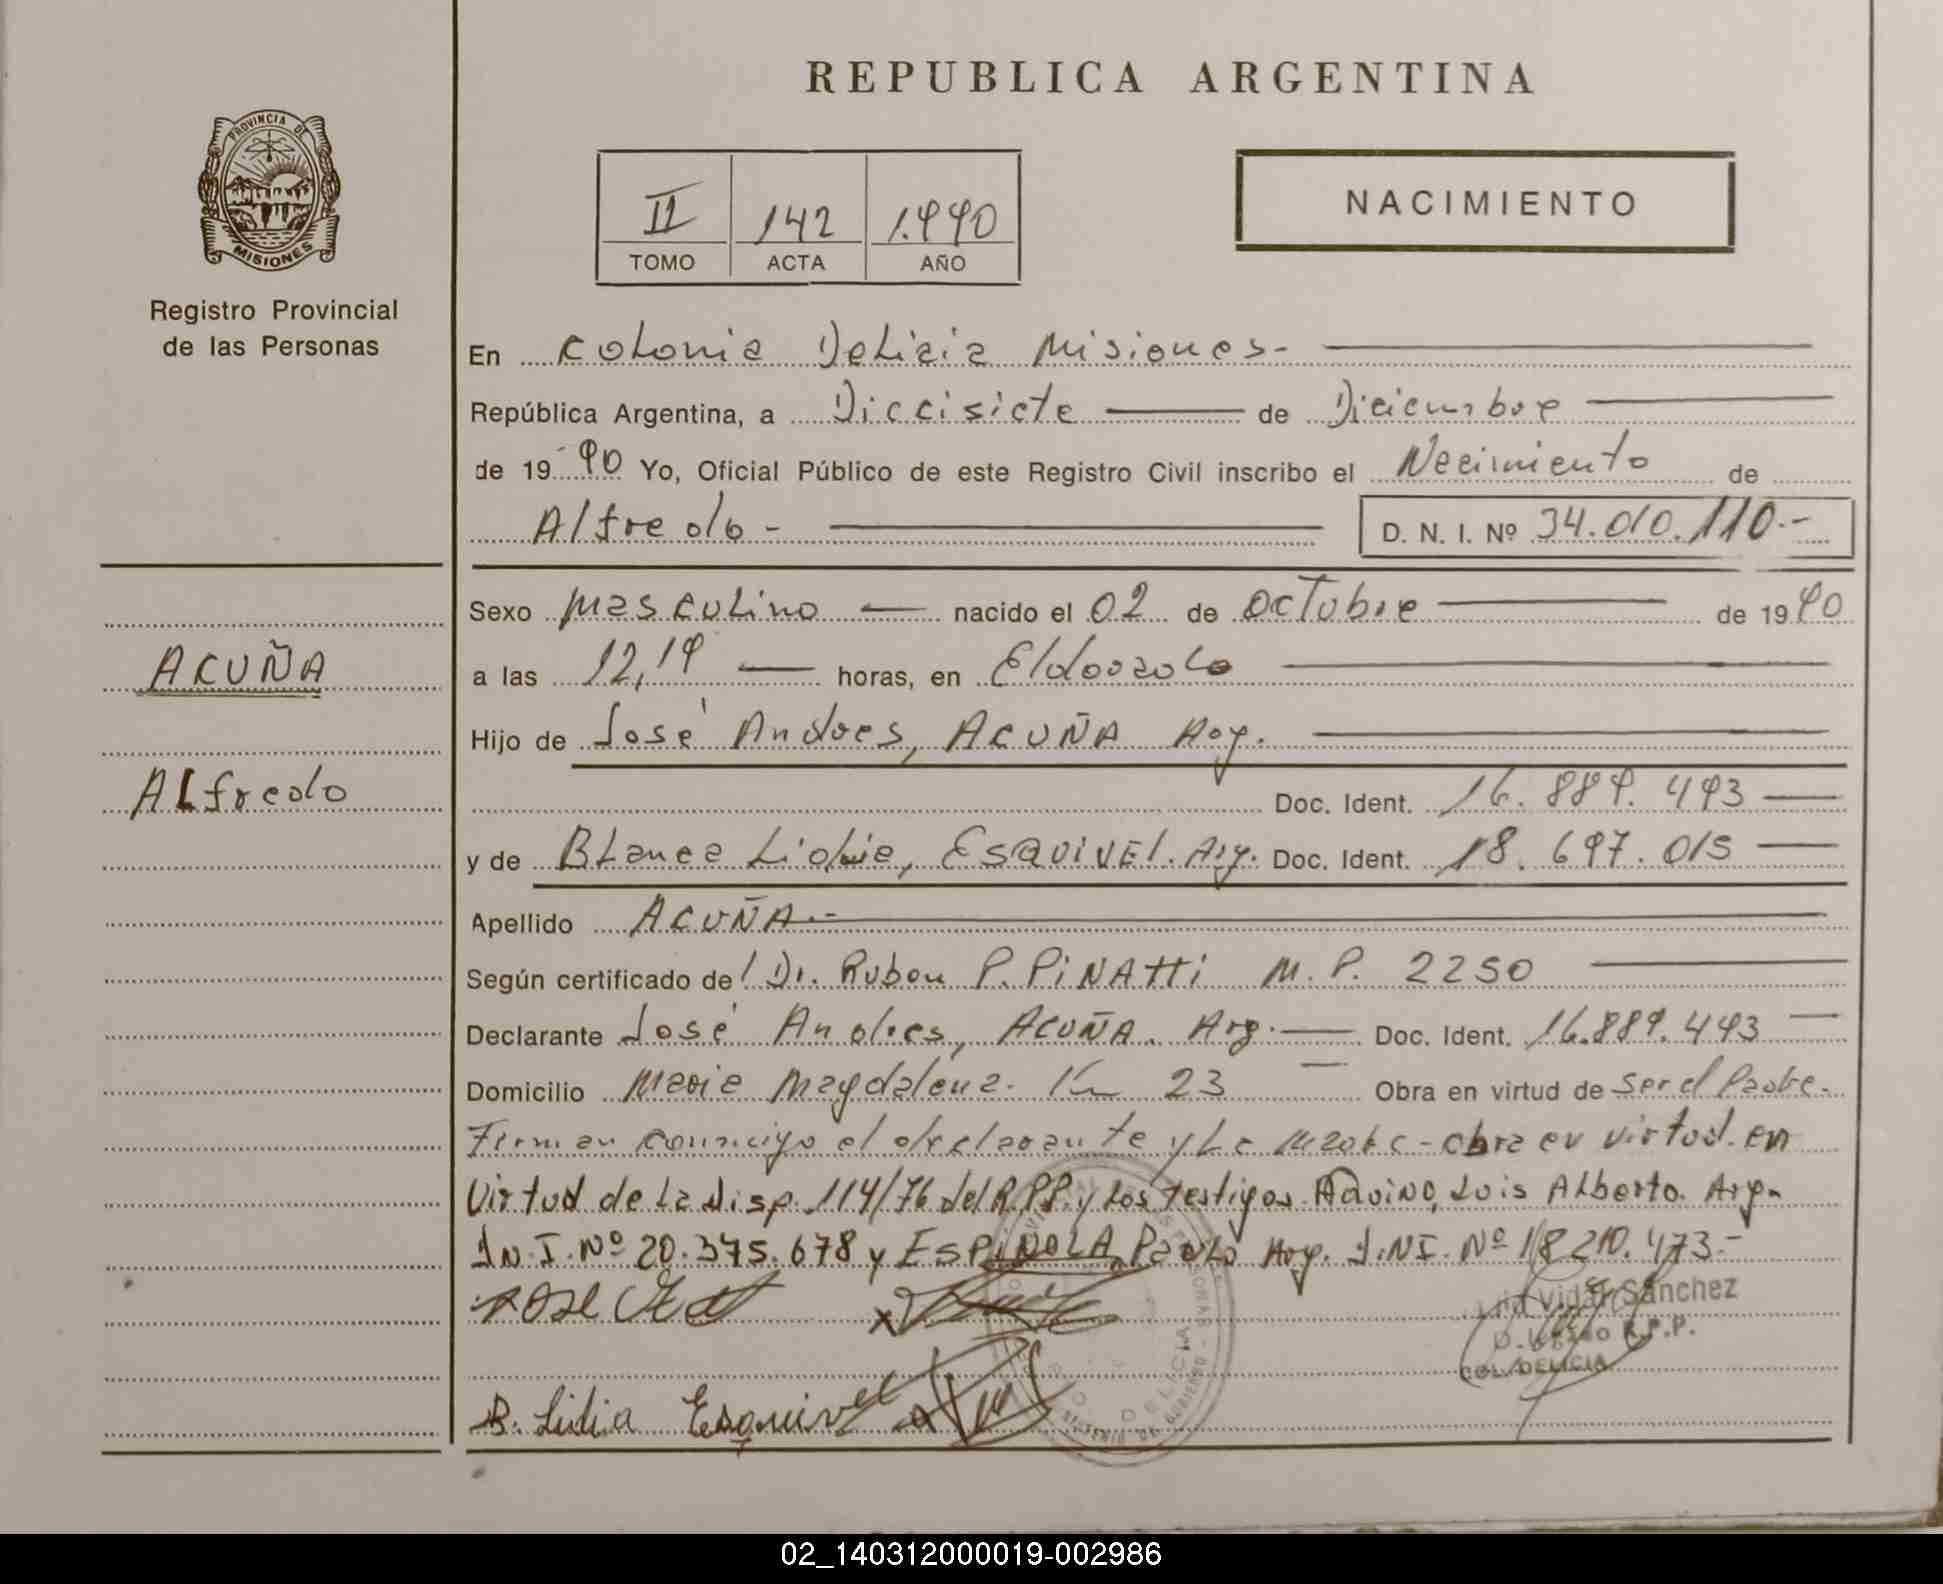 REPUBLICA ARGENTINA
PROVINCIA DE
MISIONES
II 142 1.990
TOMO ACTA AÑO
NACIMIENTO
Registro Provincial
de las Personas
En Colonia Delicia Misiones-
República Argentina, a Diecisiete de Diciembre
de 19 90 Yo, Oficial Público de este Registro Civil inscribo el Nacimiento de
Alfredo - D. N. I. Nº 34.010.110.-
Sexo Masculino nacido el 02 de Octubre de 19 90
ACUÑA
a las 12,19 horas, en Eldorado
Hijo de José Andres, ACUÑA Arg.
Alfredo
Doc. Ident. 16.889.493
y de Blanca Lidia, ESQUIVEL. Arg. Doc. Ident. 18.697.015
Apellido ACUÑA.-
Según certificado del Dr. Ruben P. PiNAtti M.P. 2250
Declarante José Andres, ACUÑA. Arg. Doc. Ident. 16.889.493
Domicilio Maria Magdalena. Km 23 Obra en virtud de ser el Padre.
Firman conmigo el declarante y la Madre - obra en virtud. en
Virtud de La Disp. 114/76 del R.P.P. y Los Testigos Aquino, Luis Alberto. Arg.
D.N.I. Nº 20.375.678 y ESPINOLA, Pablo Arg. D.NI. Nº 18.210.473.-
Vidal Sánchez
R.P.P.
COL. DELICIA
B. Lidia Esquivel
02_140312000019-002986